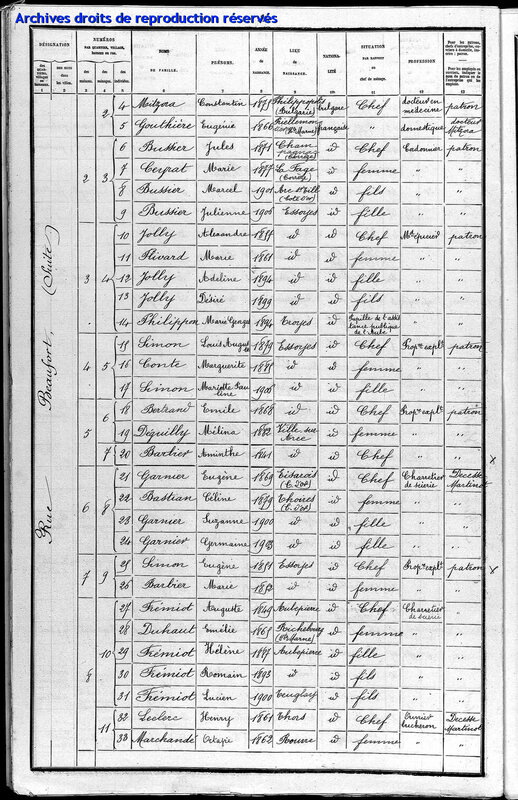 Archives droits de reproduction réservés
DÉSIGNATION
NUMÉROS
NOMS
DE FAMILLE.
PRÉNOMS.
ANNÉE
de
NAISSANCE.
LIEU
de
NAISSANCE.
NATIONA-
LITÉ
SITUATION
PAR RAPPORT
au
chef de ménage.
PROFESSION
des maisons.
des ménages.
des individus.
1 2 3 4 5 6 7 8 9 10 11 12 13
Rue Beaufort, (Suite)
2 4 Mitzora Constantin 1875 Philippopoli (Bulgarie) bulgare Chef docteur en médecine patron
5 Gouthière Eugénie 1866 française " domestique docteur Mitzora
2 3 6 Bussier Jules 1871 (Corrèze) id Chef patron
7 Marie 1877 La Fage (Corrèze) id femme " "
8 Bussier Marcel 1901 Arc s Tille (Côte d'Or) id fils " "
9 Bussier Julienne 1906 Essoyes id fille " "
3 4 10 Jolly Alexandre 1855 id id Chef Md épicier patron
11 Rivard Marie 1861 id id femme " "
12 Jolly Adeline 1894 id id fille " "
13 Jolly Désiré 1899 id id fils " "
14 Philippon Marie 1894 Troyes id Pupille de l'assistance publique de l'Aube " "
4 5 15 Simon Louis Auguste 1879 Essoyes id Chef Propre explt patron
16 Conte Marguerite 1885 id id femme " "
17 Simon Mariette Pauline 1906 id id fille " "
5 6 18 Bertrand Emile 1866 id id Chef Propre explt patron
19 Dequilly Mélina 1882 Ville sur Arce id femme " "
7 20 Barbier Aminthe 1841 id id Chef " "
6 8 21 Garnier Eugène 1869 (C. d'Or) id Chef Charretier de scierie Decesse Martinot
22 Bastian Céline 1879 Thoires (C. d'Or) id femme " "
23 Garnier Suzanne 1900 id id fille " "
24 Garnier Germaine 1903 id id fille " "
7 9 25 Simon Eugène 1851 Essoyes id Chef Propre explt patron
26 Barbier Marie 1852 id id femme " "
8 10 27 Frémiot Auguste 1849 Aubepierre id Chef Charretier de scierie
28 Duhaut Emélie 1865 Richebourg (Hte Marne) id femme " "
29 Frémiot Hélène 1887 Aubepierre id fille " "
30 Frémiot Romain 1893 id id fils " "
31 Frémiot Lucien 1900 id fils " "
11 32 Leclerc Henry 1861 Thors id Chef Ouvrier bucheron Decesse Martinot
33 Marchandé Octavie 1862 id femme " "